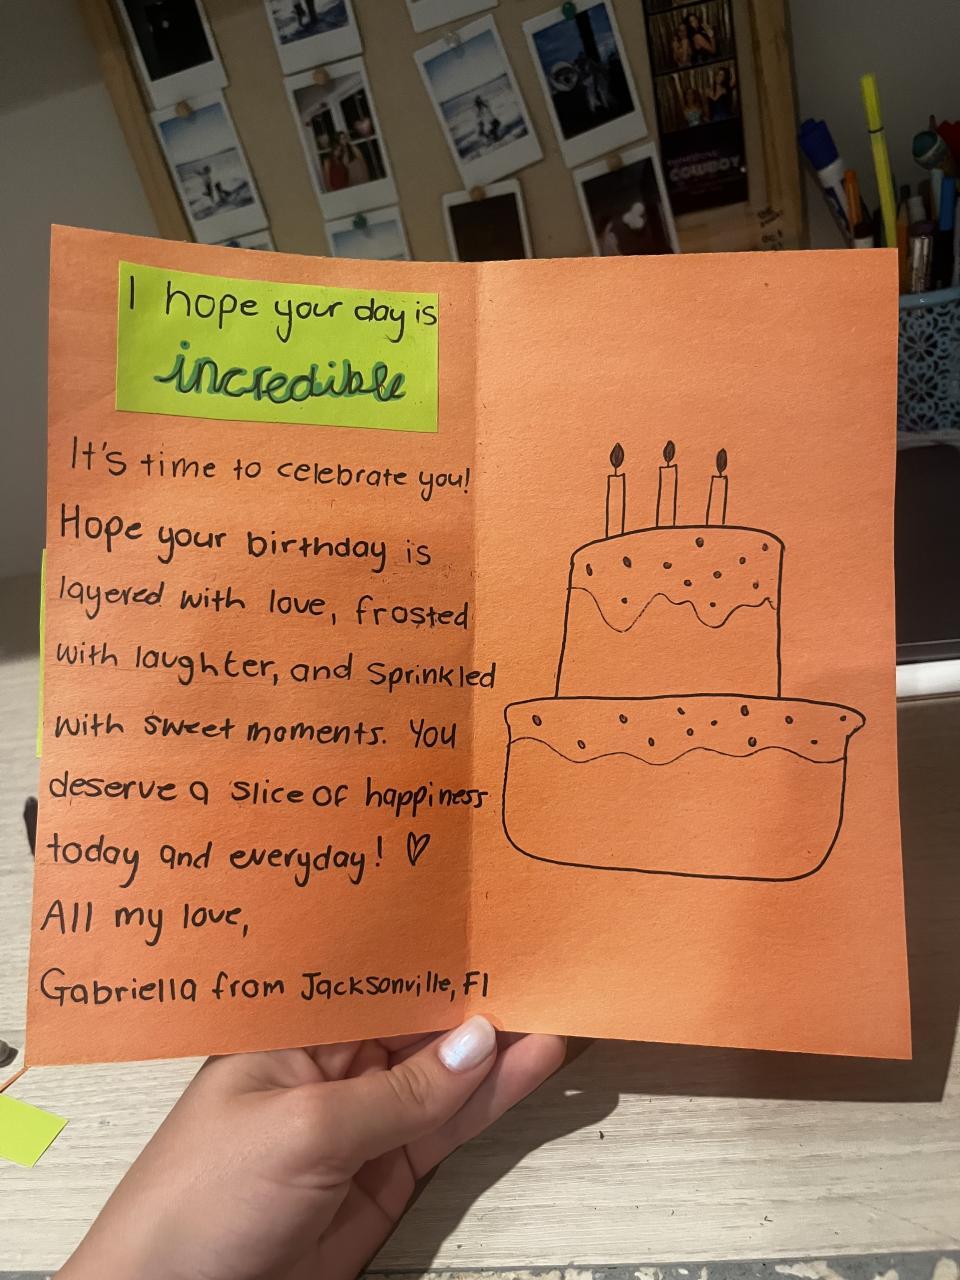 COWBOY
I hope your day is
incredible
It's time to celebrate you!
Hope your birthday is
layered with love, frosted
with laughter, and sprinkled
with sweet moments. You
deserve a slice of happiness
today and everyday! ♡
All my love,
Gabriella from Jacksonville, Fl